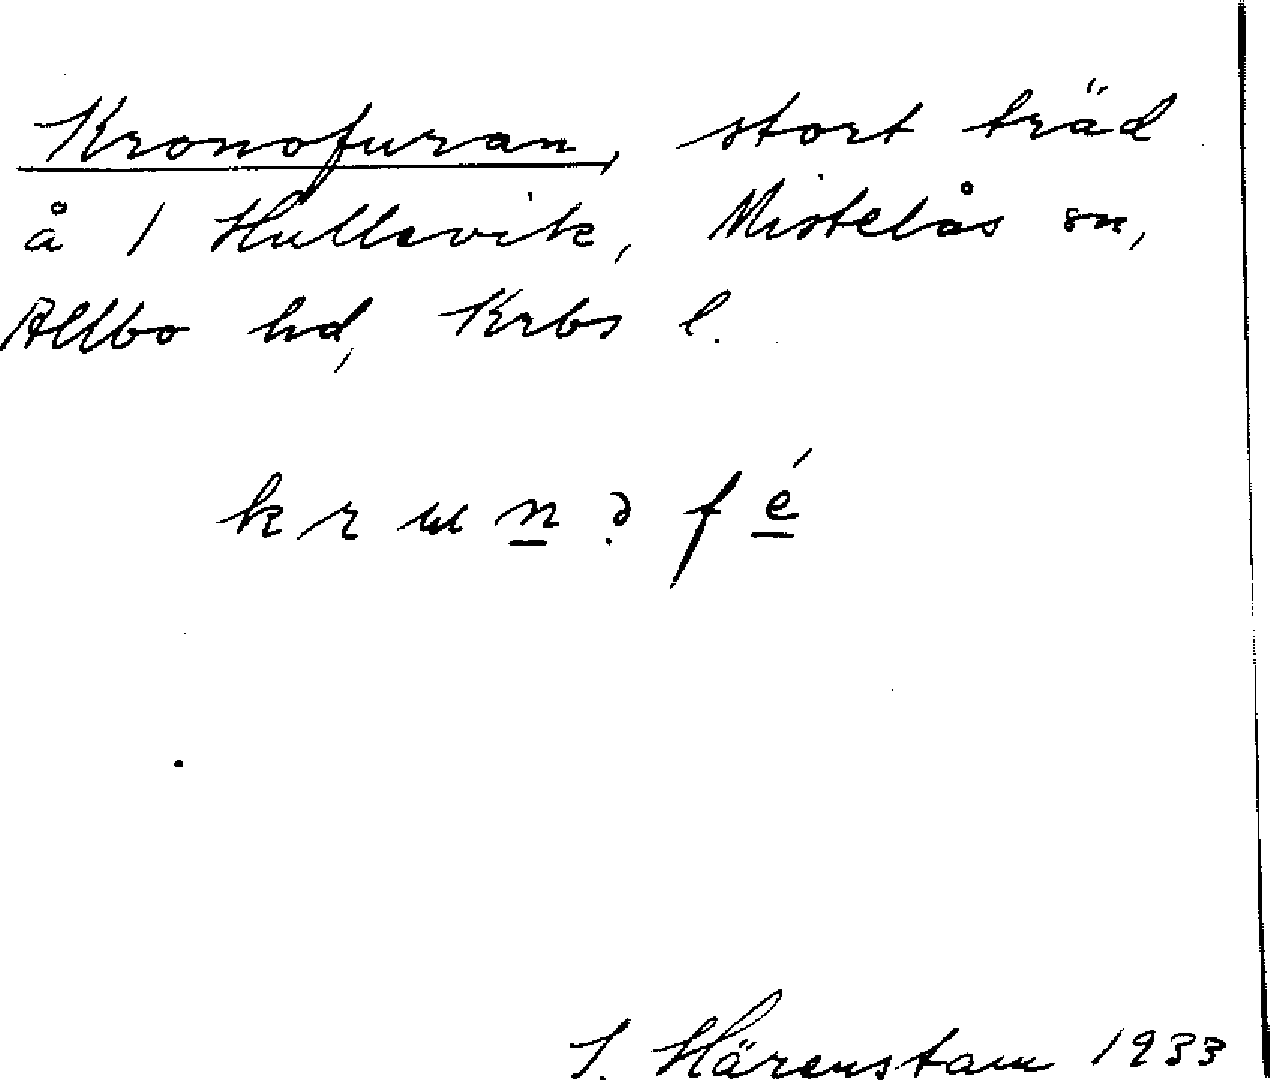 Kronofuran, stort träd
å 1 Hullsvik, Mistelås sn,
Allbo hd, Krbs l.
S. Härenstam 1933